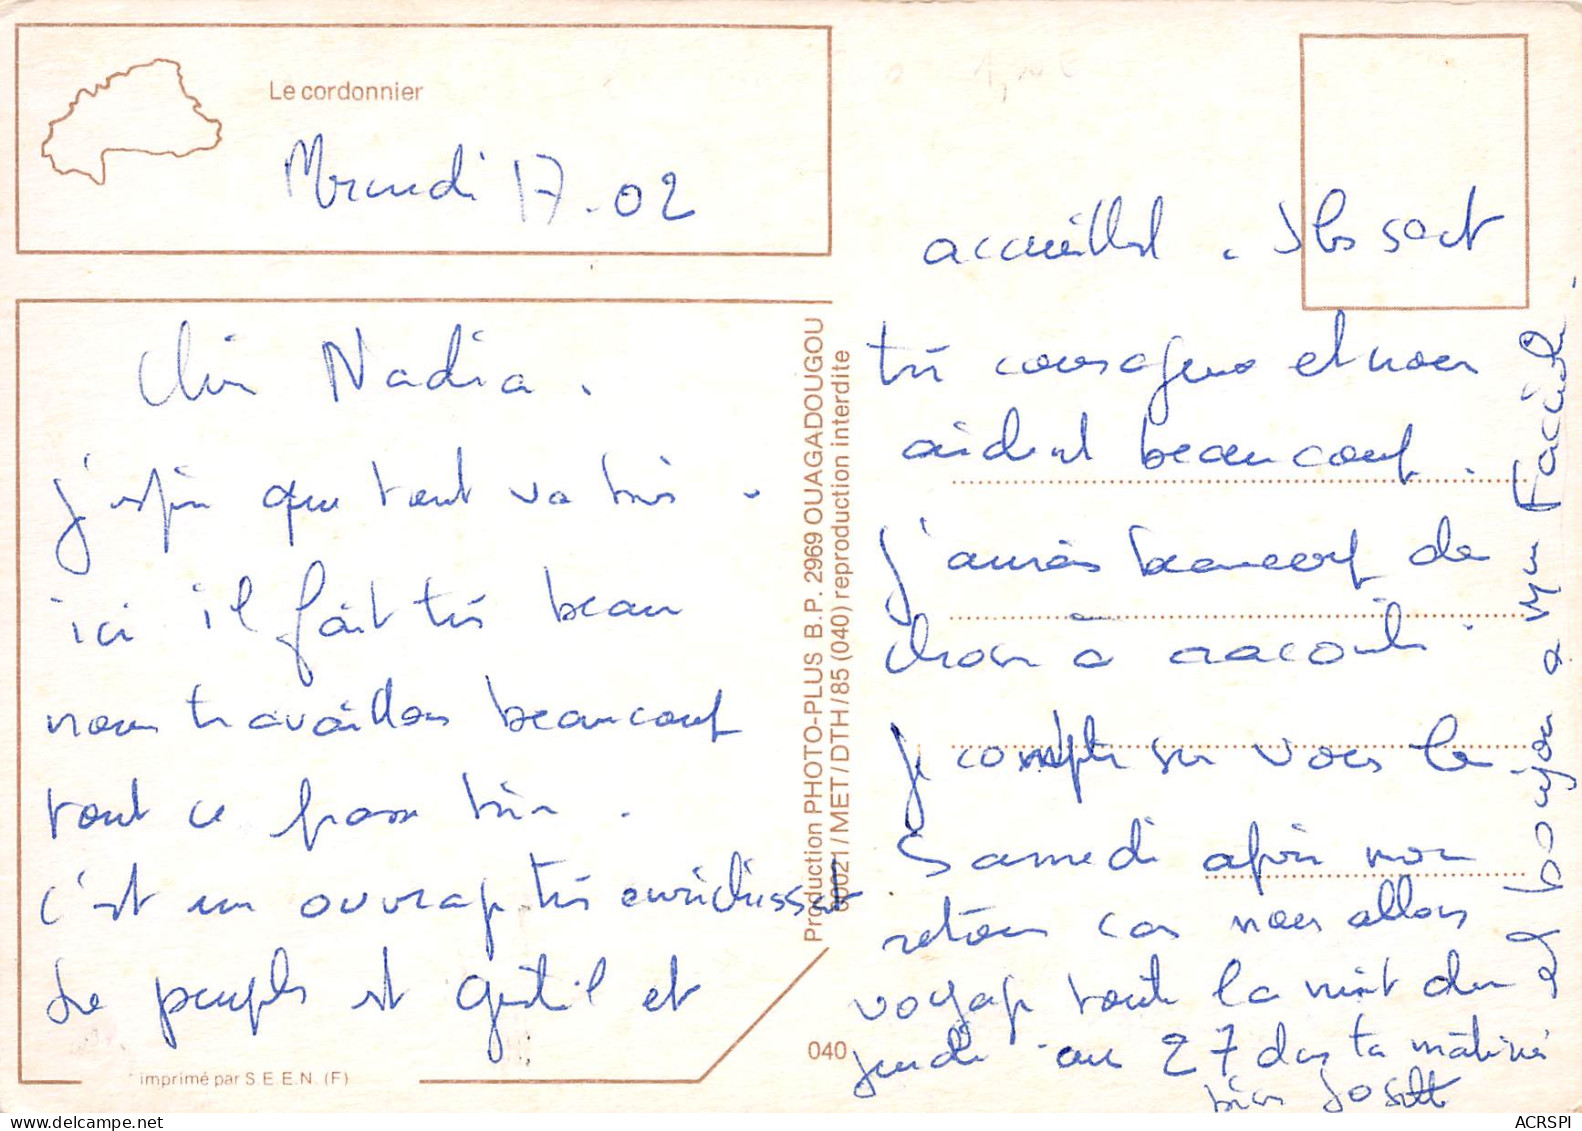 Le cordonnier
Mercredi 17-02
Chère Nadia.
j'espère que tout va bien.
ici il fait très beau
nous travaillons beaucoup
tout ce passe bien.
c'est un ouvrage très enrichissant
Le peuple est gentil et
imprimé par S.E.E.N. (F)
Production PHOTO-PLUS B.P. 2969 OUAGADOUGOU
00021/MET/DTH/85 (040) reproduction interdite
040
accueillant. Ils sont
très courageux et nous
aident beaucoup.
j'aurais beaucoup de
chose à raconter.
je compte sur vous le
Samedi après mon
retour car nous allons
voyage toute la nuit du
jeudi au 27 dans ta matinée
bises Josette
et bonjour a
ACRSPI